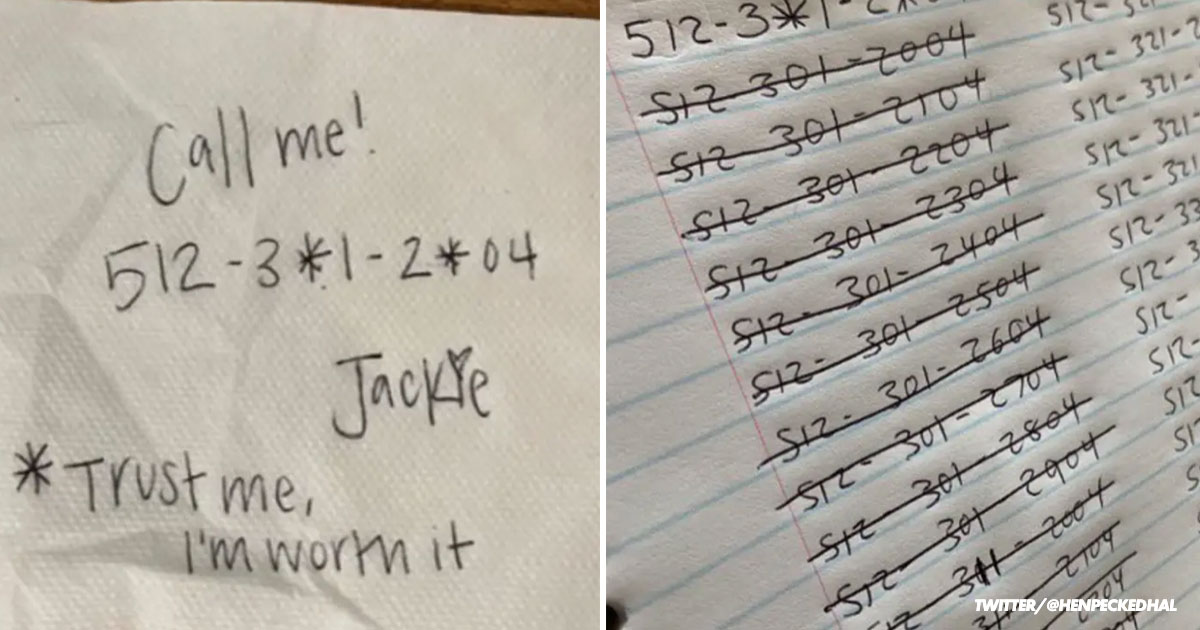 Call me!
512-3*1-2*04
Jackie
*Trust me,
I'm worth it
512-3*1-2
512-301-2004
512-301-2104
512-301-2204
512-301-2304
512-301-2404
512-301-2504
512-301-2604
512-301-2704
512-301-2804
512-301-2904
512-311-2004
2104
512-
512-321-2
512-321-
512-321-
512-321
512-32
512-3
512-
512-
512
TWITTER/@HENPECKEDHAL